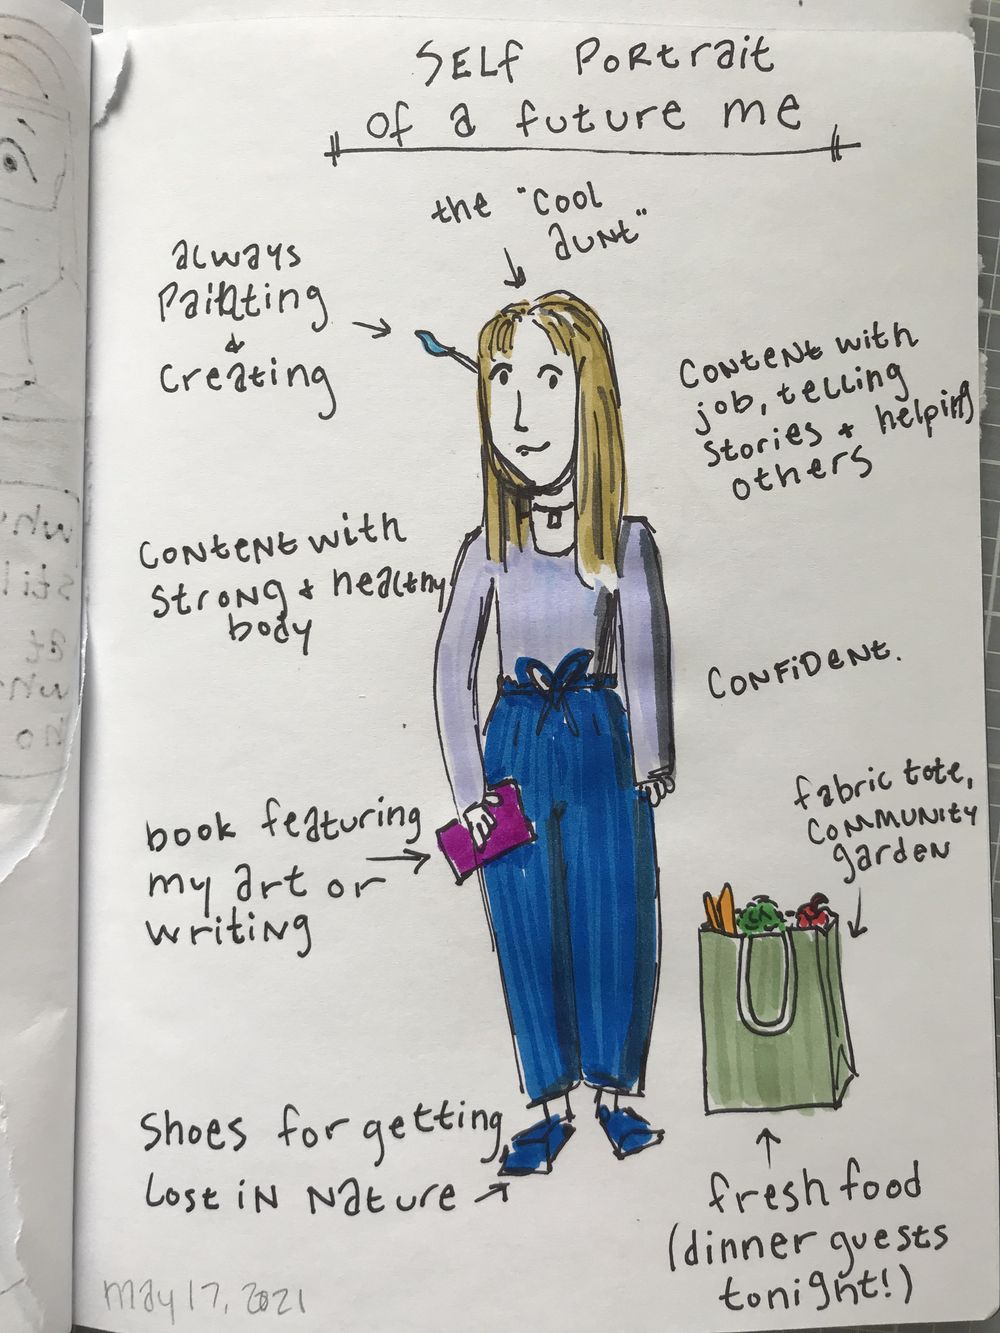 SELf PoRtrait
of a future me
the "cool
aunt"
always
Painting
&
creating
Content with
job, telling
Stories & helping
others
Content with
strong & healthy
body
CONFiDENt.
fabric tote,
COMMUNITY
garden
book featuring
my art or
writing
Shoes for getting
Lost iN Nature
fresh food
(dinner guests
tonight!)
may 17, 2021